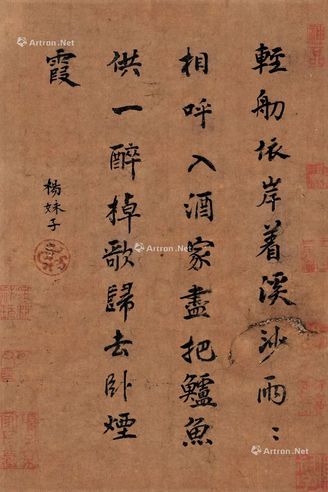 輕舠依岸着溪沙雨〻
相呼入酒家盡把鱸魚
供一醉棹歌歸去卧煙
霞
楊妹子
Artron.Net
Artron.Net
Artron.Net